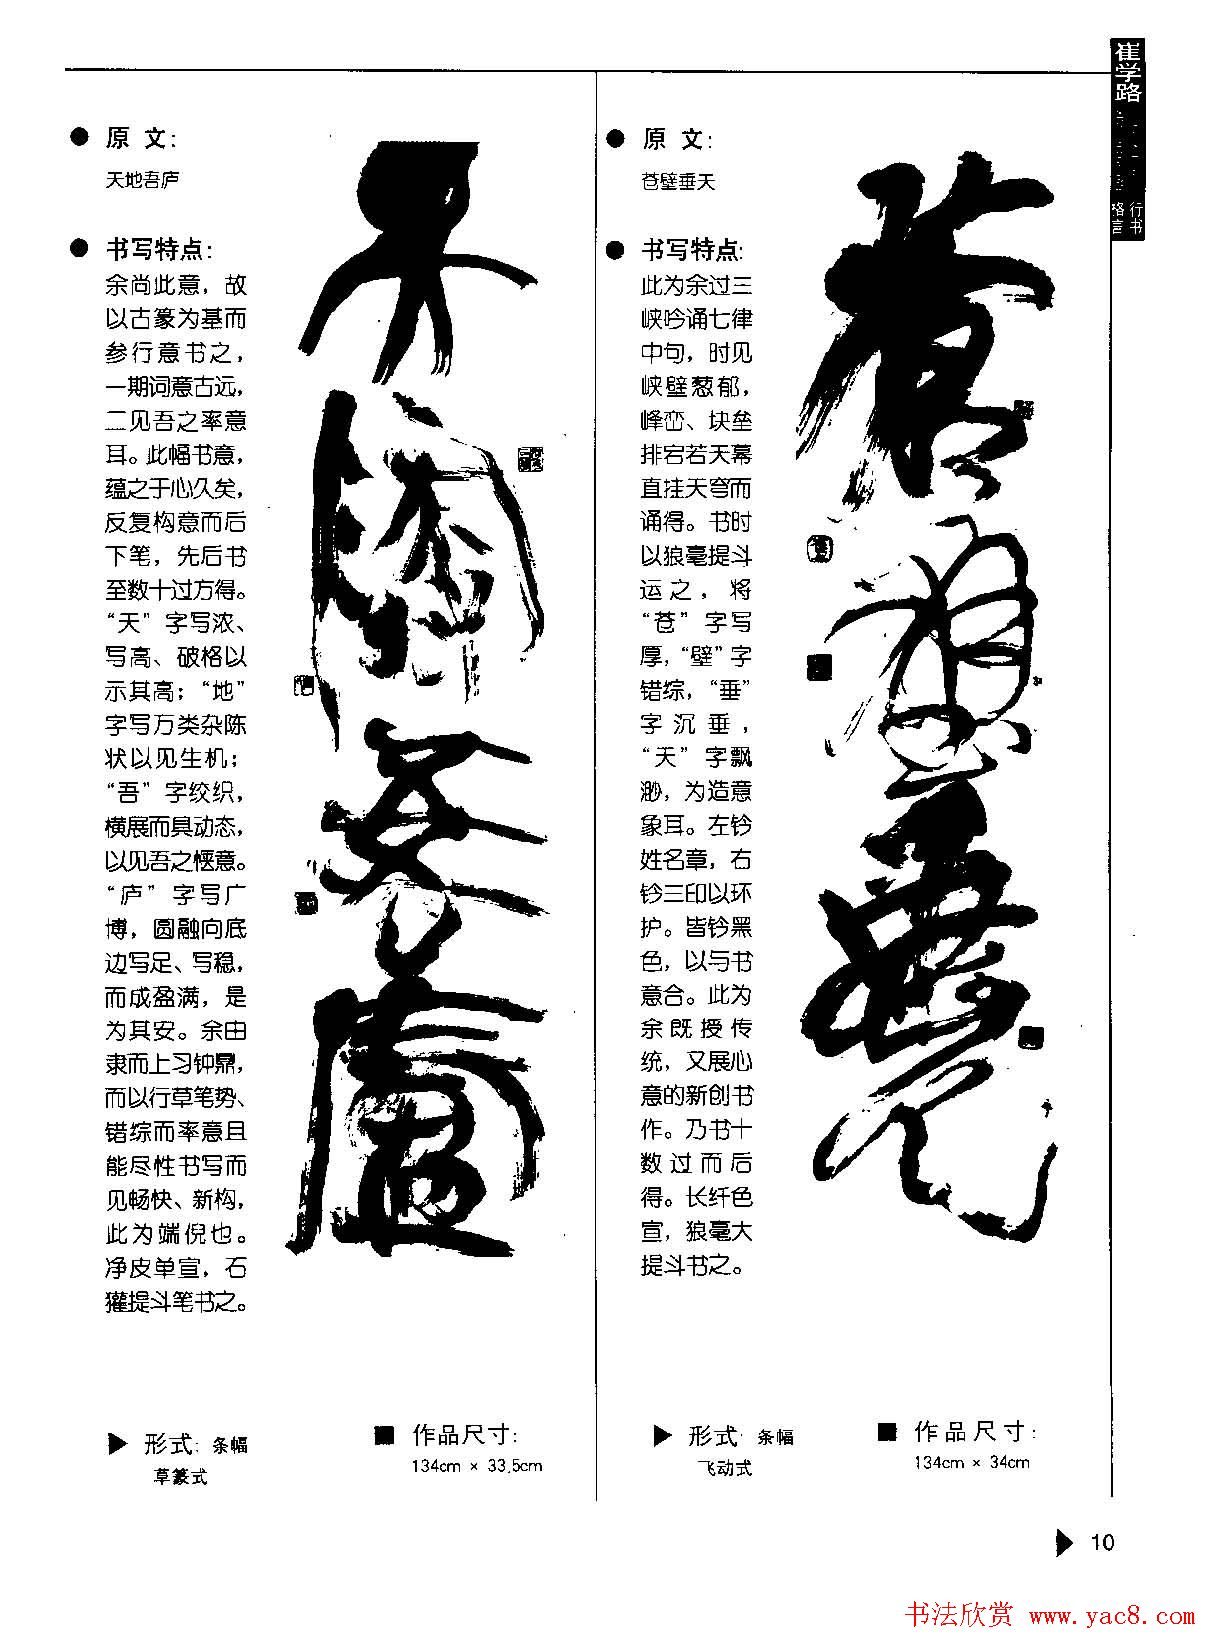 崔学路
行书
格言
原 文：
天地吾庐
书写特点：
余尚此意，故
以古篆为基而
参行意书之，
一期词意古远，
二见吾之率意
耳。此幅书意，
蕴之于心久矣，
反复构意而后
下笔，先后书
至数十过方得。
“天”字写浓、
写高、破格以
示其高；“地”
字写万类杂陈
状以见生机；
“吾”字绞织，
横展而具动态，
以见吾之惬意。
“庐”字写广
博，圆融向底
边写足、写稳，
而成盈满，是
为其安。余由
隶而上习钟鼎，
而以行草笔势、
错综而率意且
能尽性书写而
见畅快、新构，
此为端倪也。
净皮单宣，石
獾提斗笔书之。
形式：条幅
草篆式
作品尺寸：
134cm × 33.5cm
原 文：
苍壁垂天
书写特点：
此为余过三
峡吟诵七律
中句，时见
峡壁葱郁，
峰峦、块垒
排宕若天幕
直挂天穹而
诵得。书时
以狼毫提斗
运之，将
“苍”字写
厚，“壁”字
错综，“垂”
字沉垂，
“天”字飘
渺，为造意
象耳。左钤
姓名章，右
钤三印以环
护。皆钤黑
色，以与书
意合。此为
余既授传
统，又展心
意的新创书
作。乃书十
数过而后
得。长纤色
宣，狼毫大
提斗书之。
形式：条幅
飞动式
作品尺寸：
134cm × 34cm
10
书法欣赏 www.yac8.com